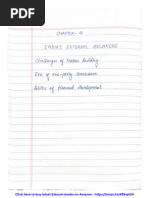 CHAPTER - 4
INDIA'S EXTERNAL RELATIONS
Challenges of Nation Building
Era of one-party dominance
Politics of planned development
Click here to buy latest Educart books on Amazon - https://amzn.to/48bvpOH